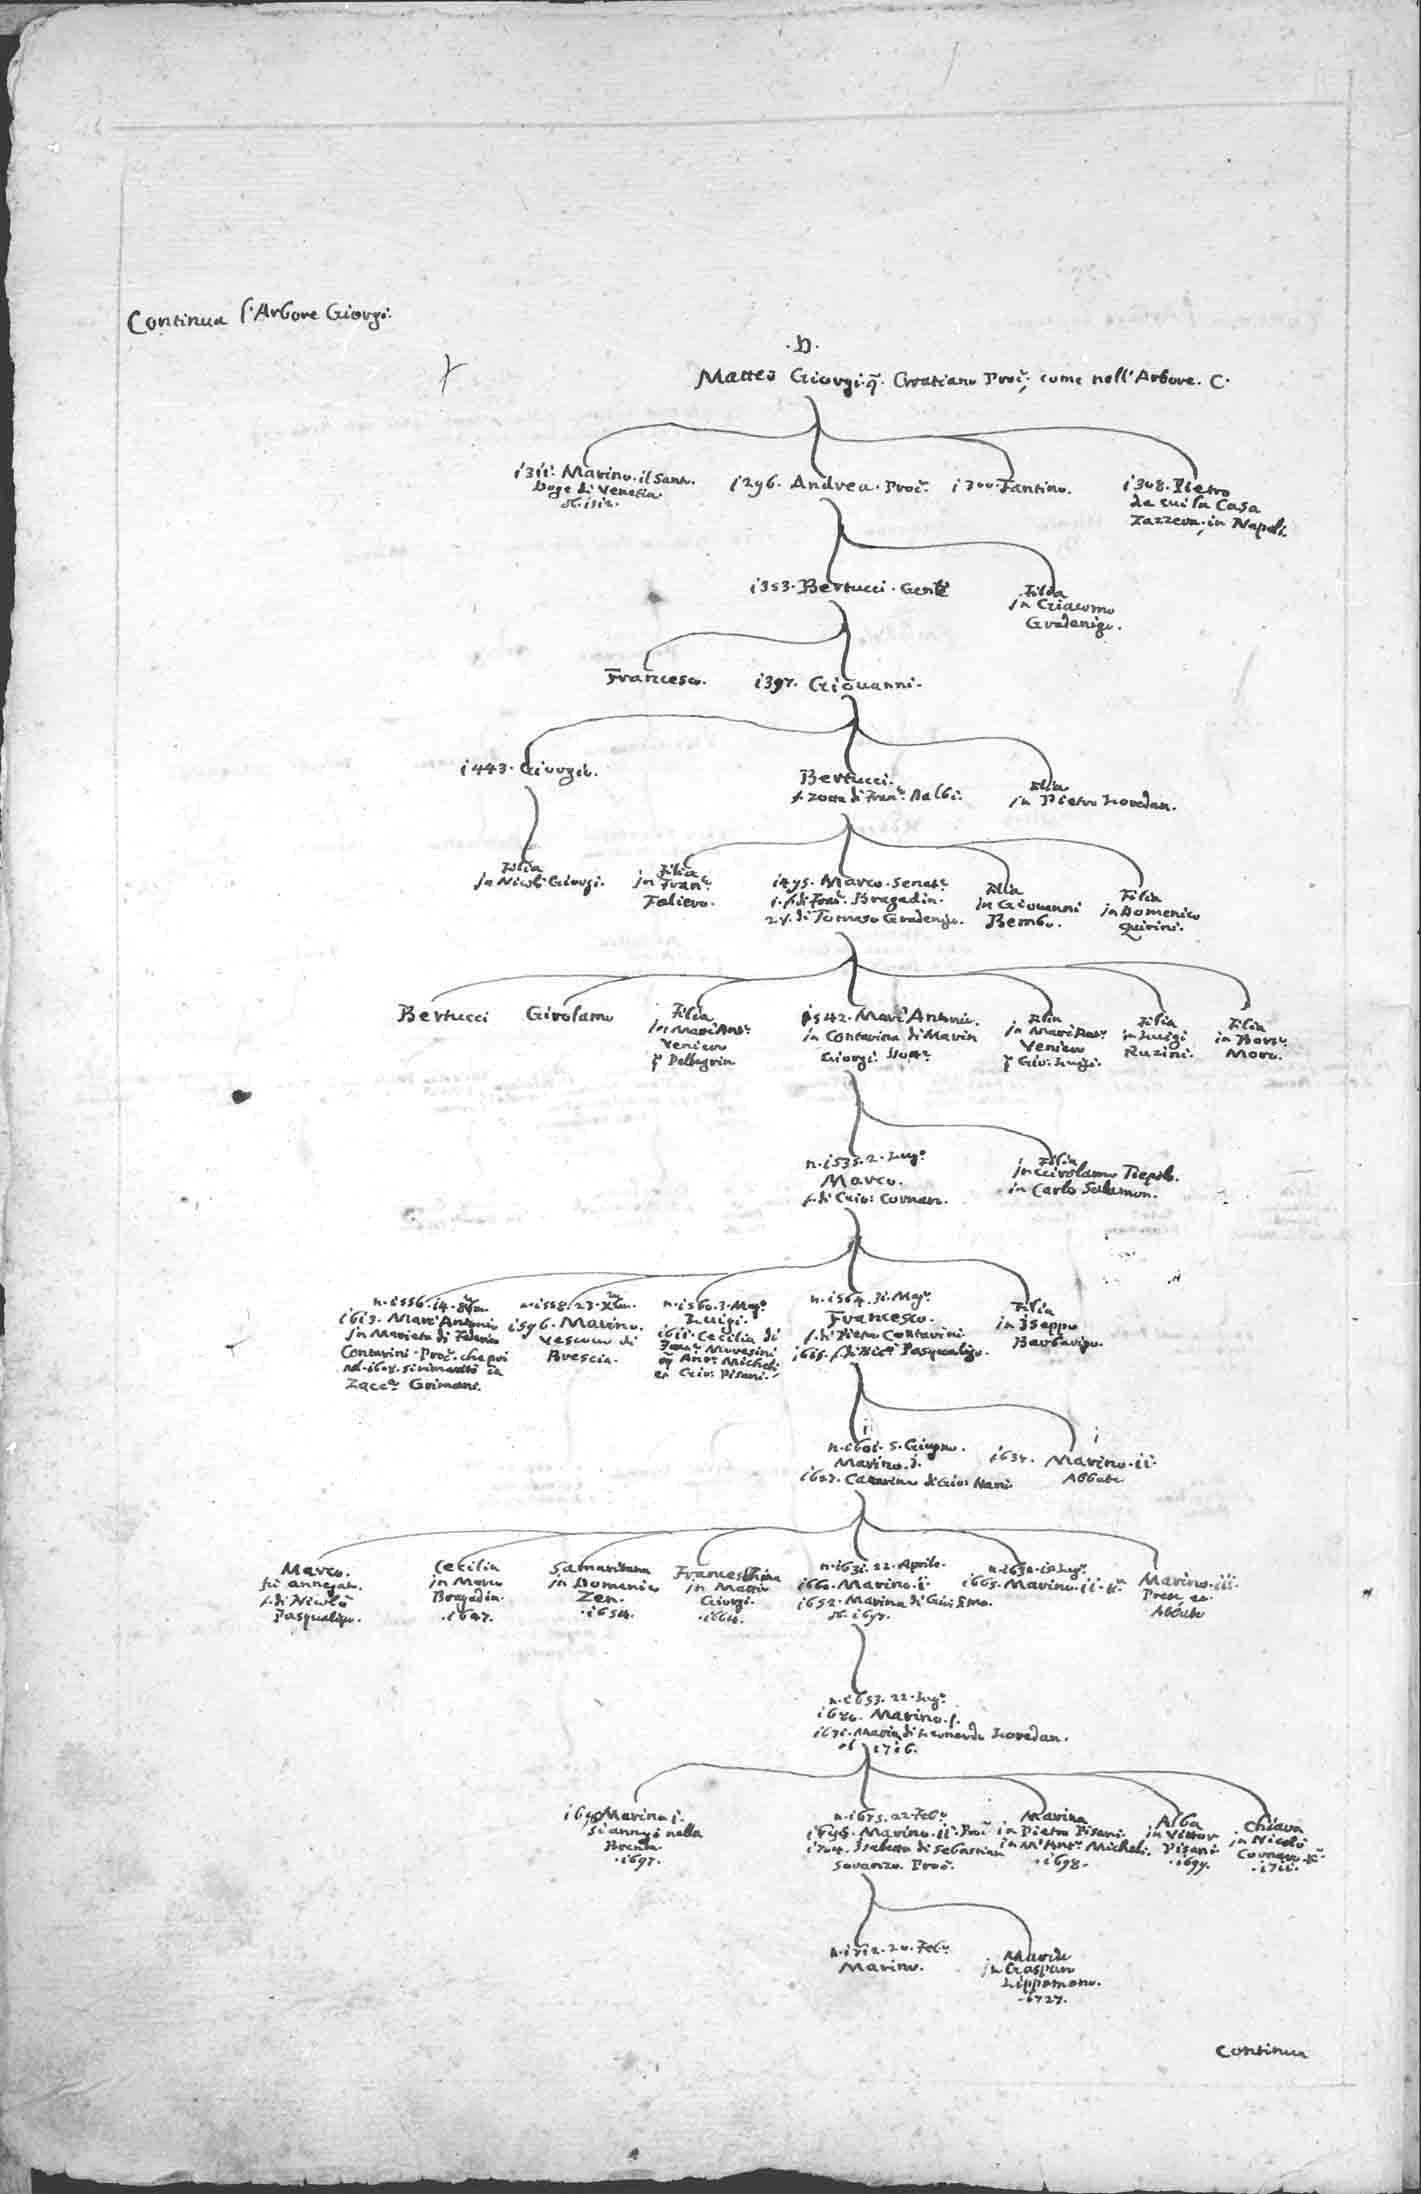 Continua l'Arbore Giorgi.
.D.
Matteo Giorgi. q. Gratiano Proc.r, come nell'Arbore. C.
i3ii. Marino. il Santo.
Doge di Venetia.
ob. i3i2.
i296. Andrea. Proc.r
i300. Fantino.
i308. Pietro
da cui la Casa
Zazzera, in Napoli.
i353. Bertucci.
Filia
in Giacomo
Gradenigo.
Francesco.
i397. Giovanni.
i443. Giorgio.
Bertucci.
di Fran.co Balbi.
Filia
in Pietro Loredan.
Filia
in Nicolò Giorgi.
Filia
in Fran.co
Faliero.
i475. Marco. Senat.r
i. f. di Fran.co Bragadin.
2. f. di Tomaso Gradenigo.
Filia
in Giovanni
Bembo.
Filia
in Domenico
Quirini.
Bertucci
Girolamo
Filia
in Marc'Ant.o
Venier
q. Pellegrin
i542. Marc'Antonio.
in Contarina di Marin
Giorgi.
Filia
in Marc'Ant.o
Venier
q. Gio: Luigi.
Filia
in Luigi
Ruzini.
Filia
in Bort.o
Moro.
n. i535. 2. Lug.o
Marco.
f. di Gio: Corner.
Filia
in Girolamo Tiepolo.
in Carlo Salamon.
n. i556. i4. 8bre.
i6i3. Marc'Antonio
in Marieta di Federico
Contarini. Proc.r che poi
nel. si maritò in
Zacc.a Grimani.
n. i558. 23. Xbre.
i596. Marino.
Vescovo di
Brescia.
n. i560. 3. Mag.o
Luigi.
i6ii. Cecilia di
Morosini
q. And.a Micheli
et Gio: Pisani.
n. i564. 3i. Mag.o
Francesco.
f. di Piero Contarini
f. di Nic.o Pasqualigo.
Filia
in Iseppo
Barbarigo.
i
n. i60i. 5. Giugno.
Marino. i.
Catarina di Gio: Nani
i
i637. Marino. ii.
Abbate
Marco.
fu annegato.
f. di Nicolò
Pasqualigo.
Cecilia
in Marco
Bragadin.
.i647.
Samaritana
in Domenico
Zen.
.i654.
Franceschina
in Mattio
Giorgi.
.i664.
n. i63i. 22. Aprile.
i660. Marino. i.
i652. Marina di Gio: Emo.
ob. i697.
i665. Marino. ii. K.r
Marino. iii.
Abbate
n. i653. 22. Lug.o
Marino. i.
i67i. Maria di Leonardo Loredan.
ob. i7i6.
Marino i.
si annegò nella
Brenta
.i697.
n. i675. 22. Feb.o
Marino. ii. Proc.r
i704. Isabetta di Sebastian
Soranzo. Proc.r
Marina
in Pietro Pisani
in M. Ant.o Micheli.
.i698.
Alba
in Vittor
Pisani
.i699.
Chiara
in Nicolò
Corner. K.r
.i7ii.
n. i7i2. 20. Feb.o
Marino.
in Gaspar
Lippomano.
.i727.
Continua